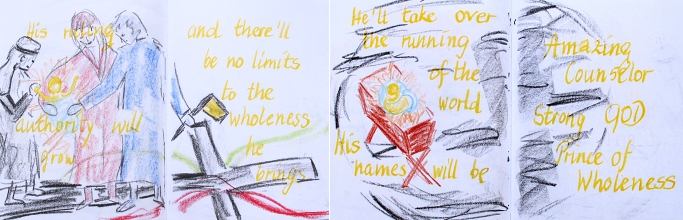 His ruling
authority will
grow
and there'll
be no limits
to the
wholeness
he
brings
He'll take over
the running
of the
world
His
names will be
Amazing
Counselor
Strong GOD
Prince of
Wholeness